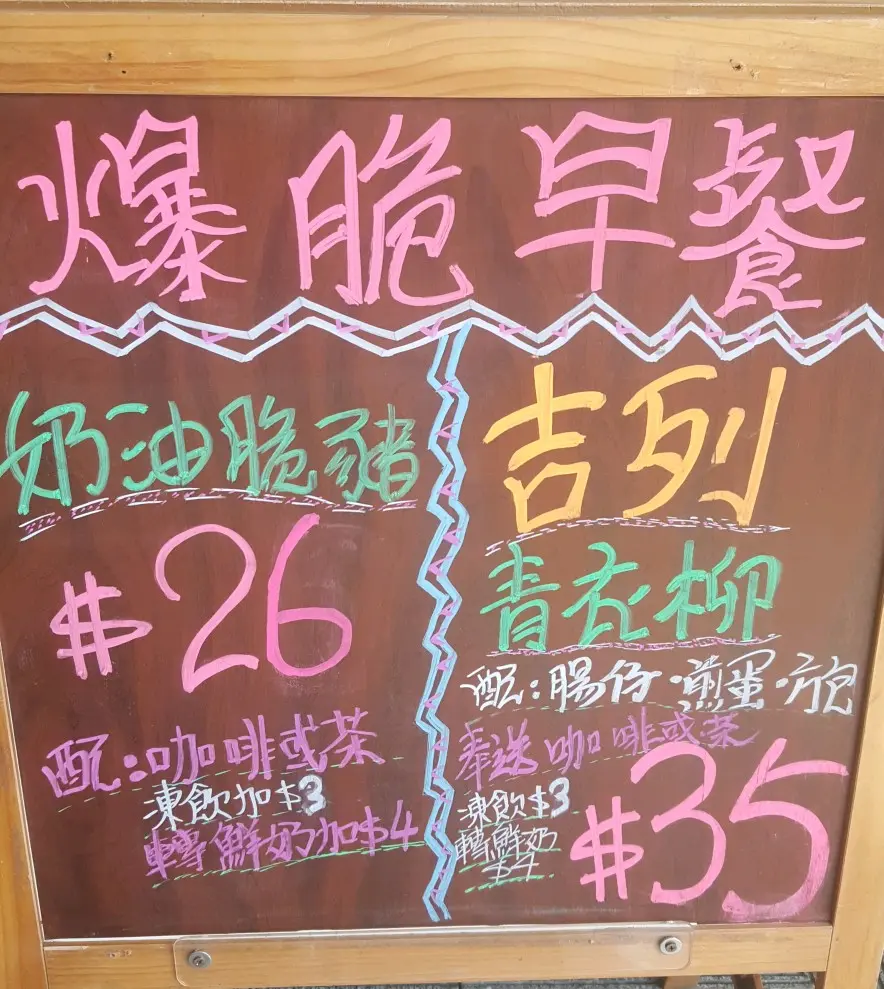 爆脆早餐
奶油脆豬
$26
配:咖啡或茶
凍飲加$3
轉鮮奶加$4
吉列
青衣柳
配:腸仔·煎蛋·方包
奉送咖啡或茶
凍飲$3
轉鮮奶
$4
$35